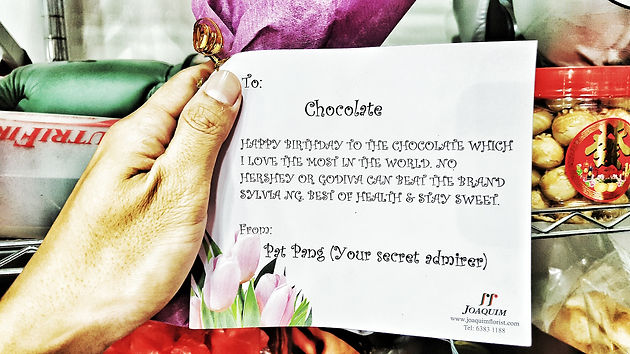 To:
Chocolate
HAPPY BIRTHDAY TO THE CHOCOLATE WHICH
I LOVE THE MOST IN THE WORLD. NO
HERSHEY OR GODIVA CAN BEAT THE BRAND
SYLVIA NG. BEST OF HEALTH & STAY SWEET.
From:
Pat Pang (Your secret admirer)
JOAQUIM
www.joaquimflorist.com
Tel: 6383 1188